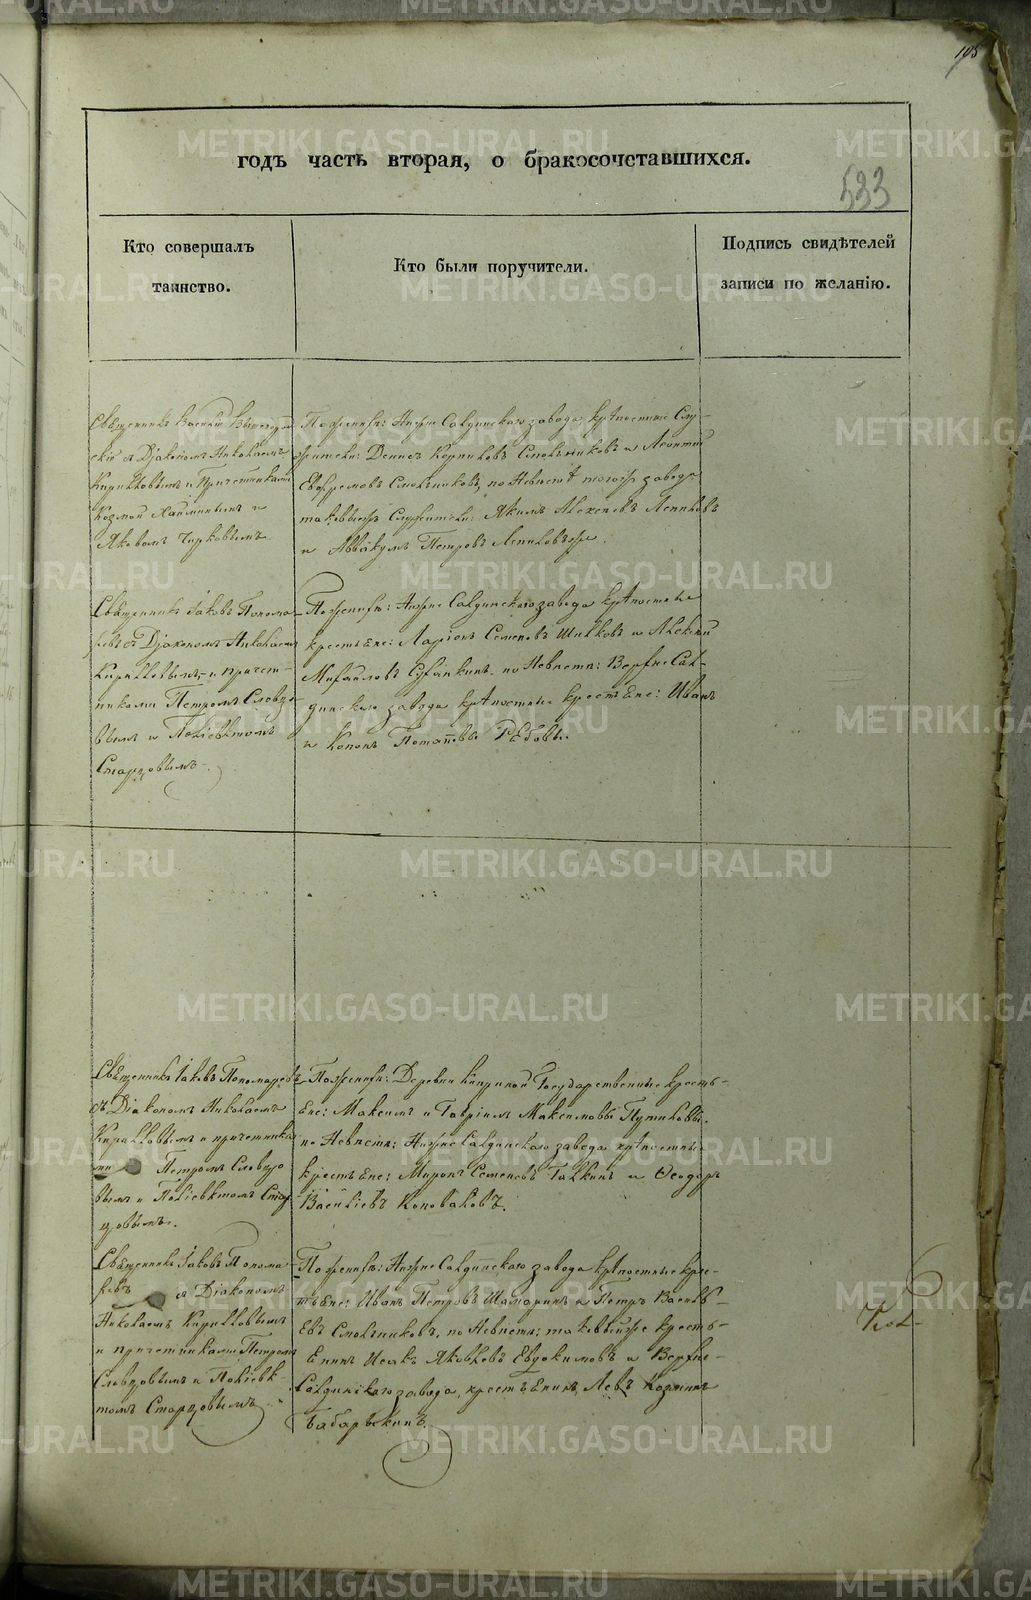 105
годъ часть вторая, о бракосочетавшихся.
533
Кто совершалъ
таинство.
Кто были поручители.
Подпись свидѣтелей
записи по желанію.
Священникъ Василій
съ Діакономъ Николаемъ
Кирилловымъ и Причетниками
Козмой и
Яковомъ
По женихѣ: Нижне Салдинскаго завода крѣпостные Слу-
жители: Денисъ Корниловъ Смольниковъ и Леонтій
Евфремовъ Смольниковъ, по Невѣстѣ тогожъ завода
таковыежъ Служители: Якимъ Алексѣевъ Лепиловъ
и Аввакумъ Петровъ Лепиловъже.
Священникъ Іаковъ Понома-
ревъ съ Діакономъ Николаемъ
Кирилловымъ, и причет-
никами Петромъ Словцо-
вымъ и Поліевктомъ
Старцовымъ.
По женихѣ: Нижне Салдинскаго завода крѣпостные
крестьяне: Ларіонъ Семеновъ Шилковъ и Алексѣй
Михайловъ по Невѣстѣ: Верхне Сал-
динскаго завода крѣпостные крестьяне: Иванъ
и Кононъ Потаповы Рябовы.
Священникъ Іаковъ Пономаревъ
съ Діакономъ Николаемъ
Кирилловымъ и причетника
ми Петромъ Словцо
вымъ и Поліевктомъ Стар
цовымъ.
По женихѣ: Деревни Государственные кресть-
яне: Максимъ и Гавріилъ Максимовы Путиловы,
по Невѣстѣ: Нижне Салдинскаго завода крѣпостные
крестьяне: Миронъ Семеновъ Галкинъ и Ѳеодоръ
Василіевъ Коноваловъ.
Священникъ Іаковъ Понома-
ревъ съ Діакономъ
Николаемъ Кирилловымъ
и причетниками Петромъ
Словцовымъ и Поліевк-
томъ Старцовымъ.
По женихѣ: Нижне Салдинскаго завода крѣпостные кре-
стьяне: Иванъ Петровъ Шамаринъ и Петръ Василь-
евъ Смольниковъ, по Невѣстѣ: таковыйже кресть-
янинъ Исакъ Яковлевъ Евдокимовъ и Верхне-
Салдинскаго завода, крестьянинъ Левъ Козминъ
Бабарыкинъ.